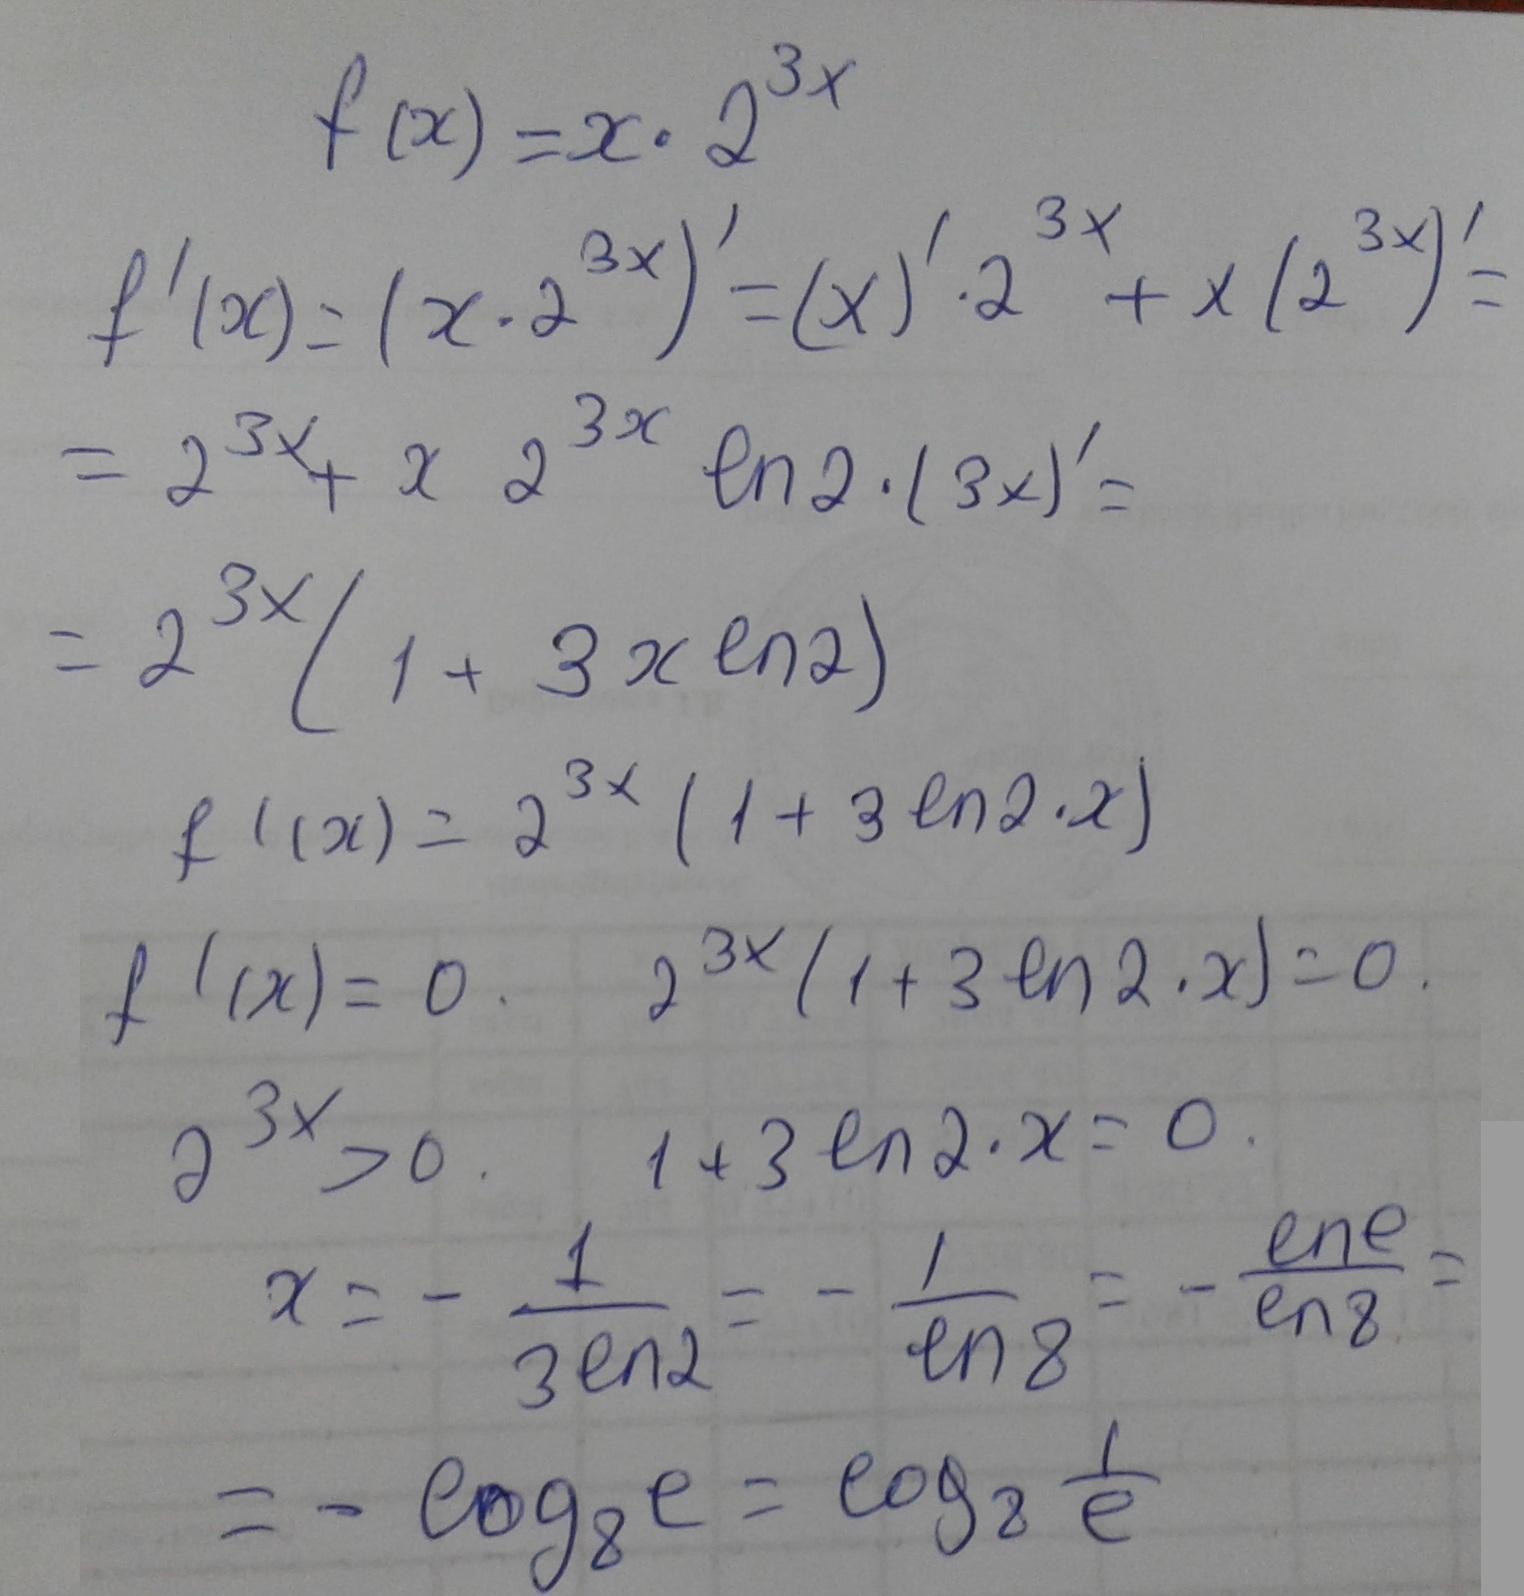 f(x) = x · 2^{3x}
f'(x) = (x · 2^{3x})' = (x)' · 2^{3x} + x (2^{3x})' =
= 2^{3x} + x 2^{3x} ln2 · (3x)' =
= 2^{3x} (1 + 3x ln2)
f'(x) = 2^{3x} (1 + 3 ln2 · x)
f'(x) = 0. 2^{3x} (1 + 3 ln2 · x) = 0.
2^{3x} > 0. 1 + 3 ln2 · x = 0.
x = - \frac{1}{3 ln2} = - \frac{1}{ln8} = - \frac{lne}{ln8} =
= - log_8 e = log_8 \frac{1}{e}